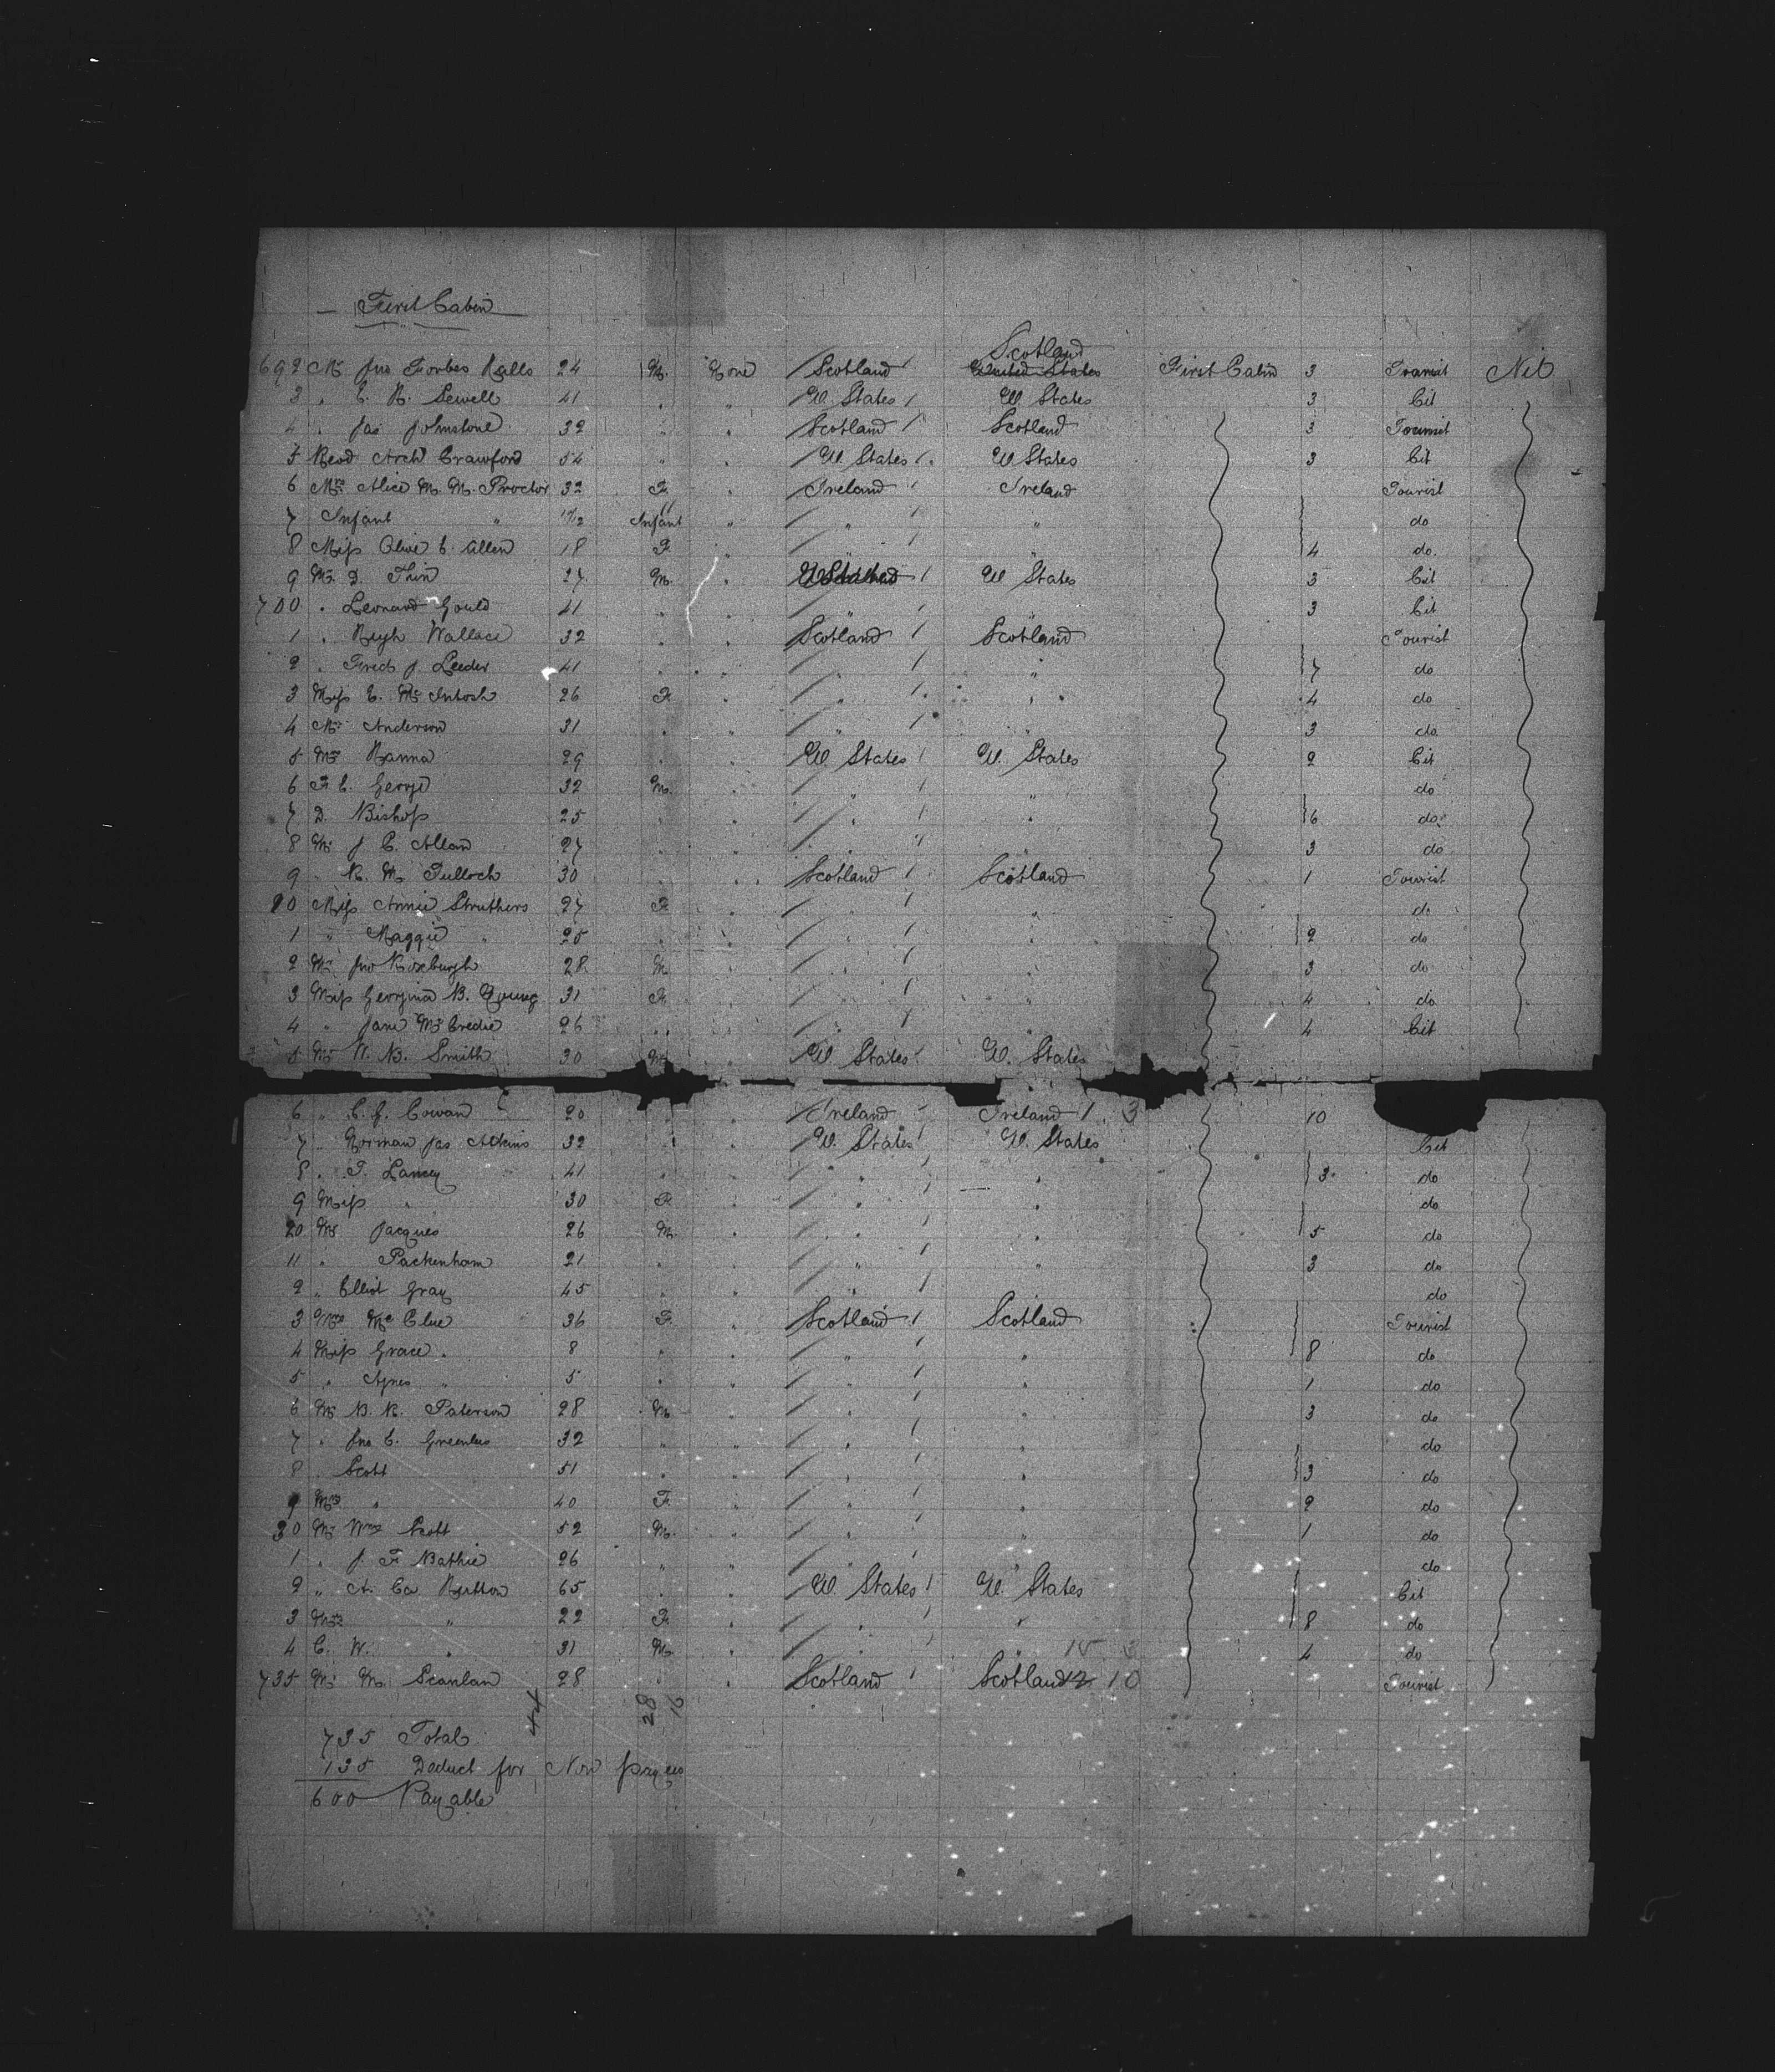 First Cabin
Scotland
692 Mr Jno Forbes 24 M. None Scotland / United States First Cabin 3 Transit Nil
3 " C. R. Sewell 41 " " U. States / U. States 3 Cit
4 " Jas Johnstone 32 " " Scotland / Scotland 3 Tourist
5 Revd Archd Crawford 54 " " U States / U States 3 Cit
6 Mrs Alice M. M. Proctor 32 F. " Ireland / Ireland Tourist
7 Infant " 10/12 Infant " " / " do
8 Miss Olive C. Allen 18 F. " " / " 4 do.
9 Mr D. Thin 27 M. " U States / U States 3 Cit
700 " Leonard Gould 41 " " " / " 3 Cit
1 " Hugh Wallace 32 " " Scotland / Scotland Tourist
2 " Fredk J. Leeder 41 " " " / " 7 do
3 Miss C. McIntosh 26 F " " / " 4 do
4 Mr Anderson 31 " " " / " 3 do
5 Mrs Hanna 29 " " U States / U. States 2 Cit
6 F. C. George 32 M. " " / " do
7 D. Bishop 25 " " " / " 6 do
8 Mr J C. Allan 27 " " " / " 3 do
9 " R. M. Tulloch 30 " " Scotland / Scotland 1 Tourist
10 Miss Annie Struthers 27 F " " / " do
1 " Maggie " 25 " " " / " 2 do
2 Mr Jno Roxburgh 28 M " " / " 3 do
3 Miss Georgina B. Young 31 F. " " / " 4 do
4 " Jane McCredie 26 " " " / " 4 Cit
5 Mr W. B. Smith 30 M. " U States / U. States
6 " C. J. Cowan 20 " " Ireland / Ireland 1 3 10
7 " Norman Jas Atkins 32 " " U. States / U. States Cit
8 " T. Lancey 41 " " " / " 3 do
9 Miss " 30 F. " " / " do
20 Mr Jacques 26 M. " " / " 5 do
11 " Packenham 21 " " " / " 3 do
2 " Elliot Gray 45 " " " / do
3 Mrs McClue 36 F. " Scotland / Scotland Tourist
4 Miss Grace " 8 " " " / " 8 do
5 " Agnes " 5 " " " / 1 do
6 Mr B. R. Paterson 28 M " " / " 3 do
7 " Jno C. Greenlees 32 " " " / " do
8 " Scott 51 " " " / " 3 do
9 Mrs " 40 F. " " / " 2 do
30 Mr Wm Scott 52 M. " " / " 1 do
1 " J. F. Bathie 26 " " " / " do
2 " A. Ca 65 " " U. States / U. States Cit
3 Mrs " 22 F. " " / " 8 do
4 C. W. " 31 M. " " / " 15 3 4 do
735 Mr M. Scanlan 28 " " Scotland / Scotland 12 10 Tourist
44 28 16
735 Total
135 Deduct for Non
600 Payable